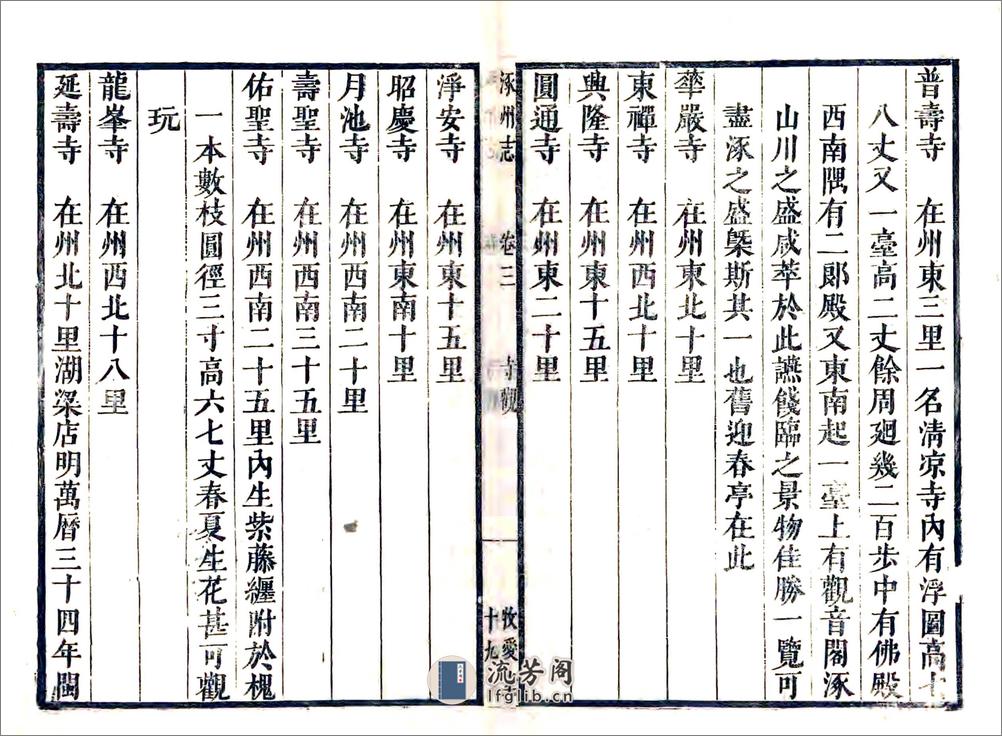 普壽寺　在州東三里一名清凉寺內有浮圖高七
八丈又一臺高二丈餘周廻幾二百步中有佛殿
西南隅有二郎殿又東南起一臺上有觀音閣涿
山川之盛咸萃於此讌餞臨之景物佳勝一覽可
盡涿之盛槩斯其一也舊迎春亭在此
華嚴寺　在州東北十里
東禪寺　在州西北十里
興隆寺　在州東十五里
圓通寺　在州東二十里
涿州志　卷三　寺觀　十九　牧愛
淨安寺　在州東十五里
昭慶寺　在州東南十里
月池寺　在州西南二十里
壽聖寺　在州西南三十五里
佑聖寺　在州西南二十五里內生紫藤纒附於槐
一本數枝圓徑三寸高六七丈春夏生花甚可觀
玩
龍峯寺　在州西北十八里
延壽寺　在州北十里湖梁店明萬曆三十四年閩
流芳阁
lfglib.cn